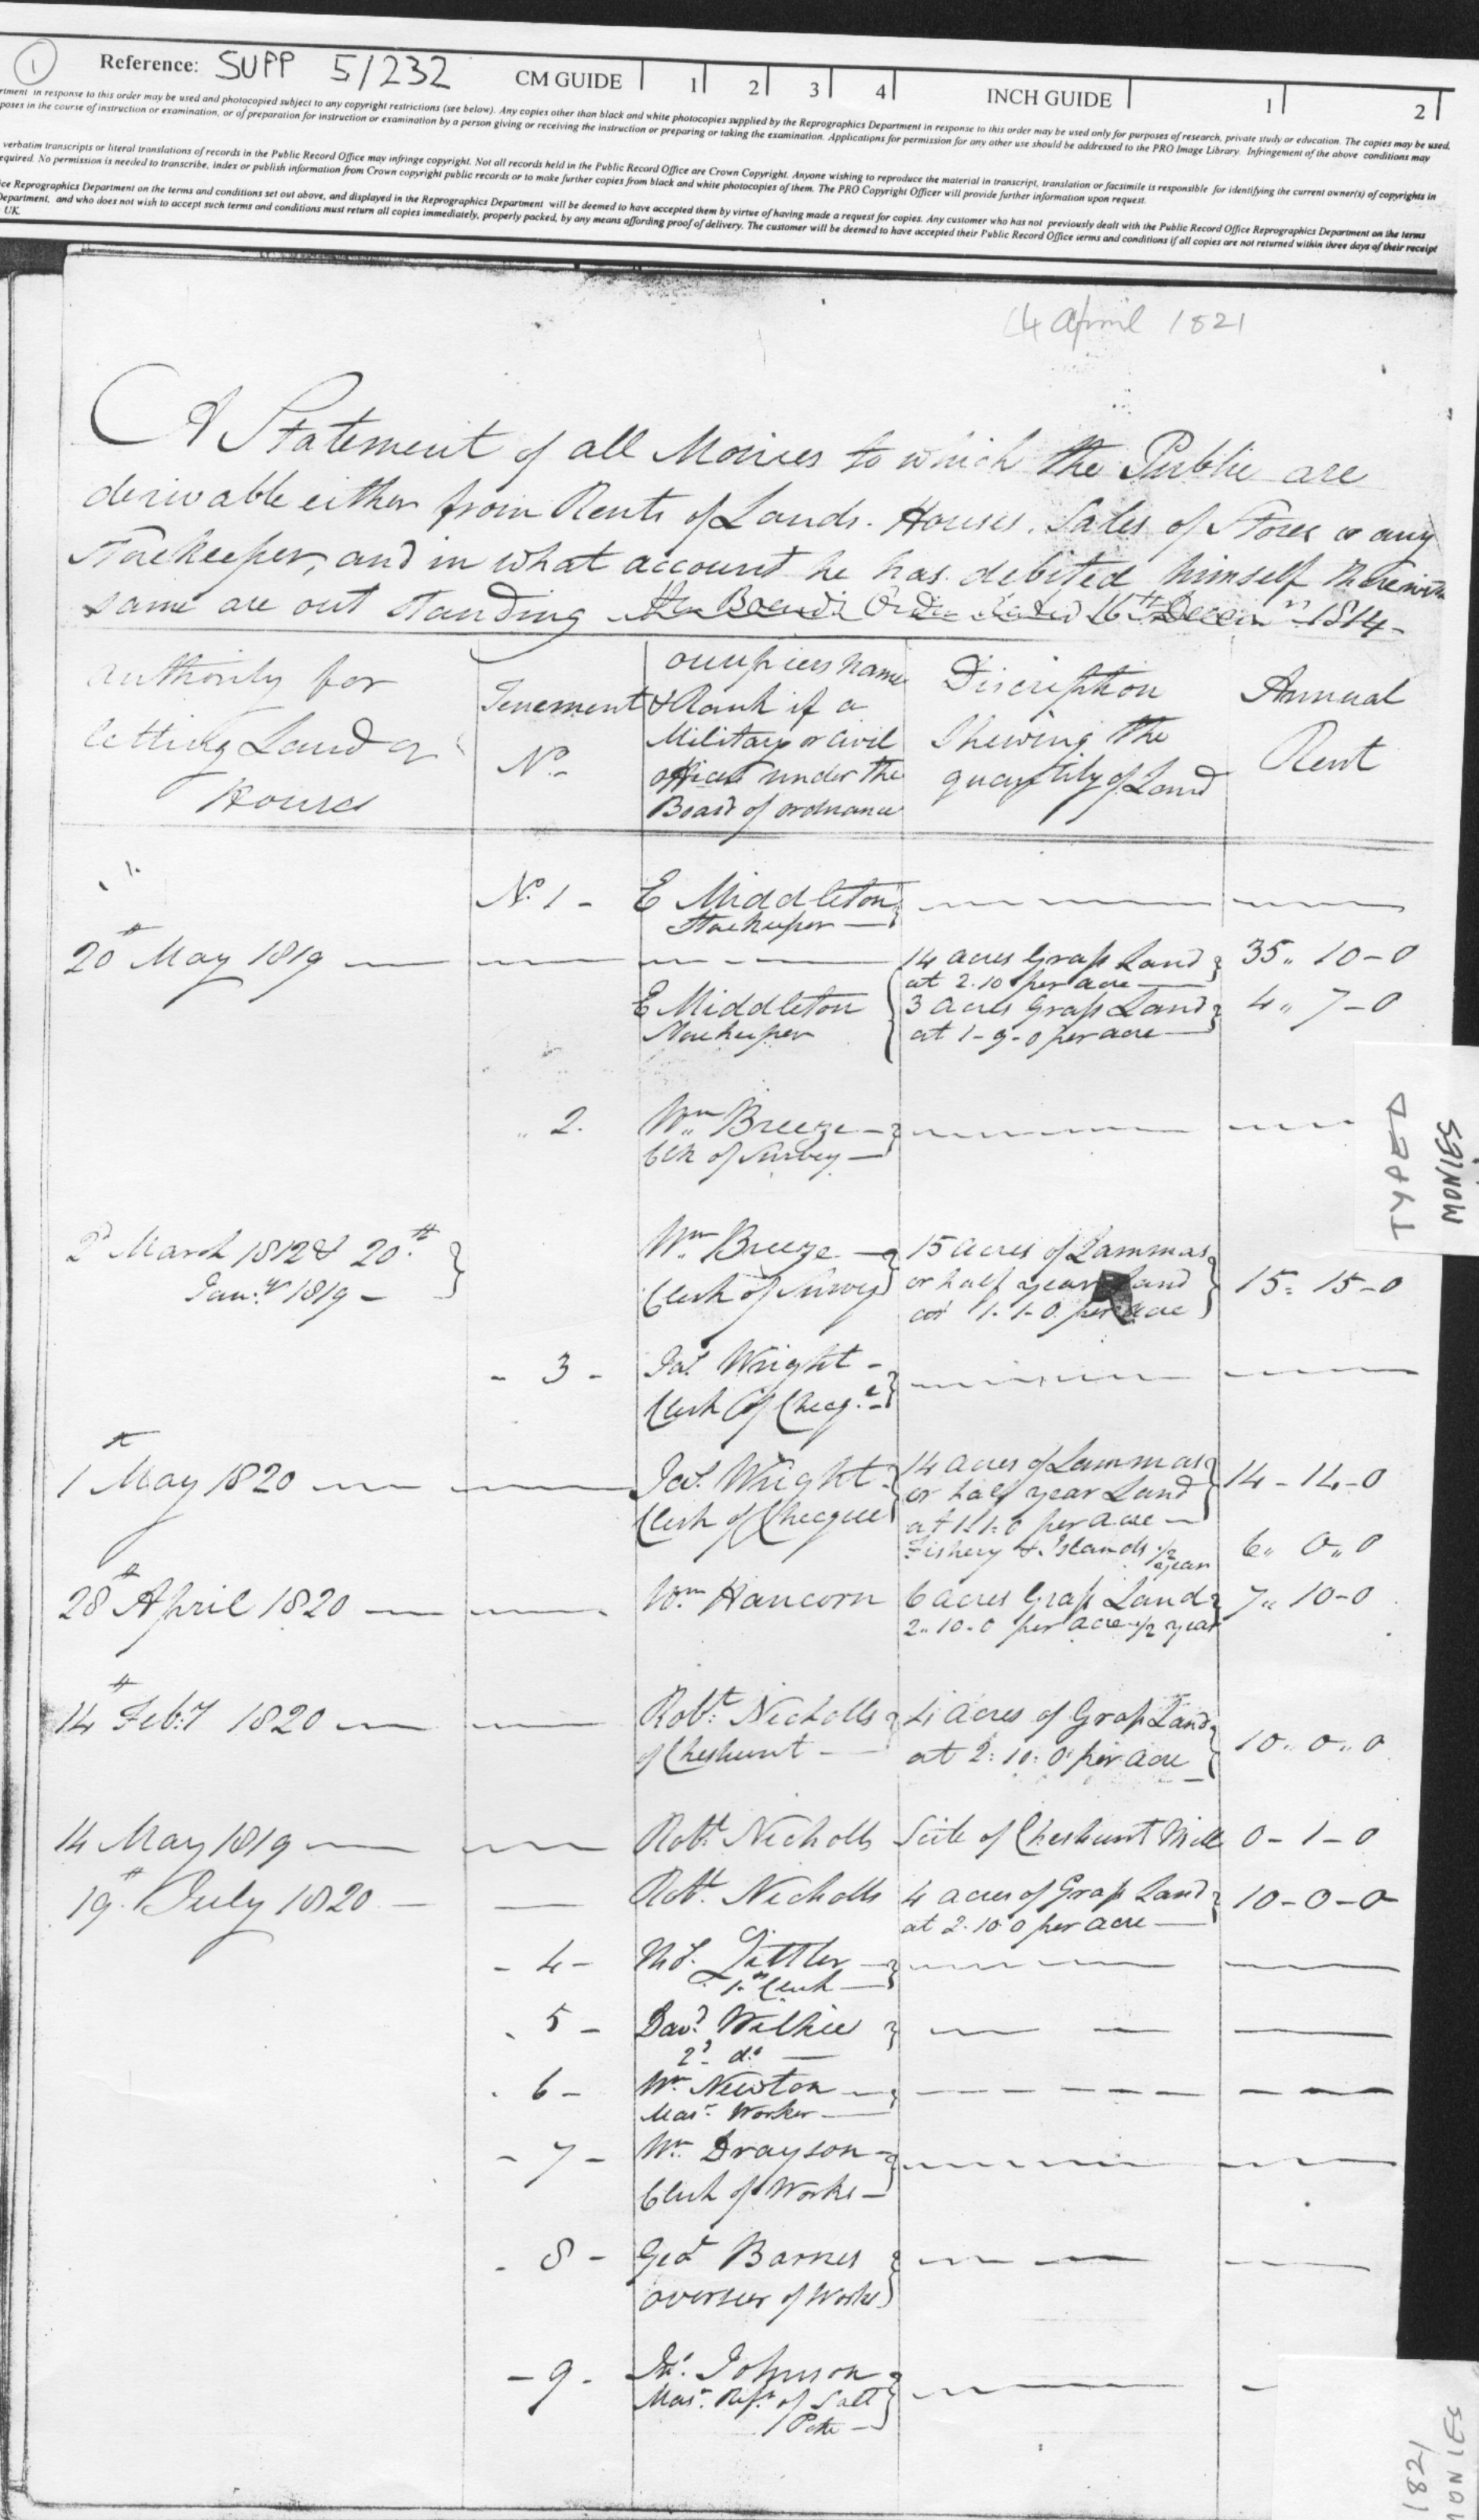 1 Reference: SUPP 5/232 CM GUIDE 1 2 3 4 INCH GUIDE 1 2
rtment in response to this order may be used and photocopied subject to any copyright restrictions (see below). Any copies other than black and white photocopies supplied by the Reprographics Department in response to this order may be used only for purposes of research, private study or education. The copies may be used,
poses in the course of instruction or examination, or of preparation for instruction or examination by a person giving or receiving the instruction or preparing or taking the examination. Applications for permission for any other use should be addressed to the PRO Image Library. Infringement of the above conditions may
verbatim transcripts or literal translations of records in the Public Record Office may infringe copyright. Not all records held in the Public Record Office are Crown Copyright. Anyone wishing to reproduce the material in transcript, translation or facsimile is responsible for identifying the current owner(s) of copyrights in
equired. No permission is needed to transcribe, index or publish information from Crown copyright public records or to make further copies from black and white photocopies of them. The PRO Copyright Officer will provide further information upon request.
ice Reprographics Department on the terms and conditions set out above, and displayed in the Reprographics Department will be deemed to have accepted them by virtue of having made a request for copies. Any customer who has not previously dealt with the Public Record Office Reprographics Department on the terms
Department, and who does not wish to accept such terms and conditions must return all copies immediately, properly packed, by any means affording proof of delivery. The customer will be deemed to have accepted their Public Record Office terms and conditions if all copies are not returned within three days of their receipt
UK.
14 April 1821
A Statement of all Monies to which the Public are
derivable either from Rents of Lands. Houses. Sales of Stores or any
Storekeeper, and in what account he has debited himself therewith
same are out standing the Boards Order dated 16th Decemr 1814-
Authority for
letting Land or
Houses
Tenement
No.-
occupiers name
& Rank if a
Military or Civil
officer under the
Board of ordnance
Discription
Shewing the
quantity of Land
Annual
Rent
No. 1 - E Middleton
Storekeeper
20th May 1819 14 acres Grass Land 35" 10-0
at 2.10 per acre
E Middleton 3 acres Grass Land 4" 7-0
Storekeeper at 1-9-0 per acre
2. Wm Breeze
Clk of Survey
2d March 1812 & 20th Wm Breeze 15 acres of Lammas
Jany 1819 - Clerk of Survey or half year Land 15= 15-0
at 1-1-0 per acre
- 3 - Jas. Wright -
Clerk of Checqe
1st May 1820 Jas. Wright 14 acres of Lammas 14-14-0
Clerk of Checque or half year Land
at 1.1.0 per acre
Fishery & Islands 1/2 year 6" 0"0
28th April 1820 Wm Hancorn 6 acres Grass Land 7" 10-0
2"10-0 per acre 1/2 year
14th Feb:y 1820 Robt. Nicholls 4 acres of Grass Land
of Cheshunt at 2:10:0 per acre 10"0"0
14 May 1819 Robt. Nicholls Scite of Cheshunt Mill 0-1-0
19th July 1820 Robt. Nicholls 4 acres of Grass Land 10-0-0
at 2.10.0 per acre
- 4 - Ths. Tittler
1st Clerk
5 - Davd. Wilkie
2d do
6 - Wm Newton
Masr. Worker
- 7 - Wm. Drayson
Clerk of Works
- 8 - Geo. Barnes
overseer of Works
- 9 - Jn. Johnson
Masr. Refr. of Salt
Petre
TYPED
MONIES
1821
MONIES